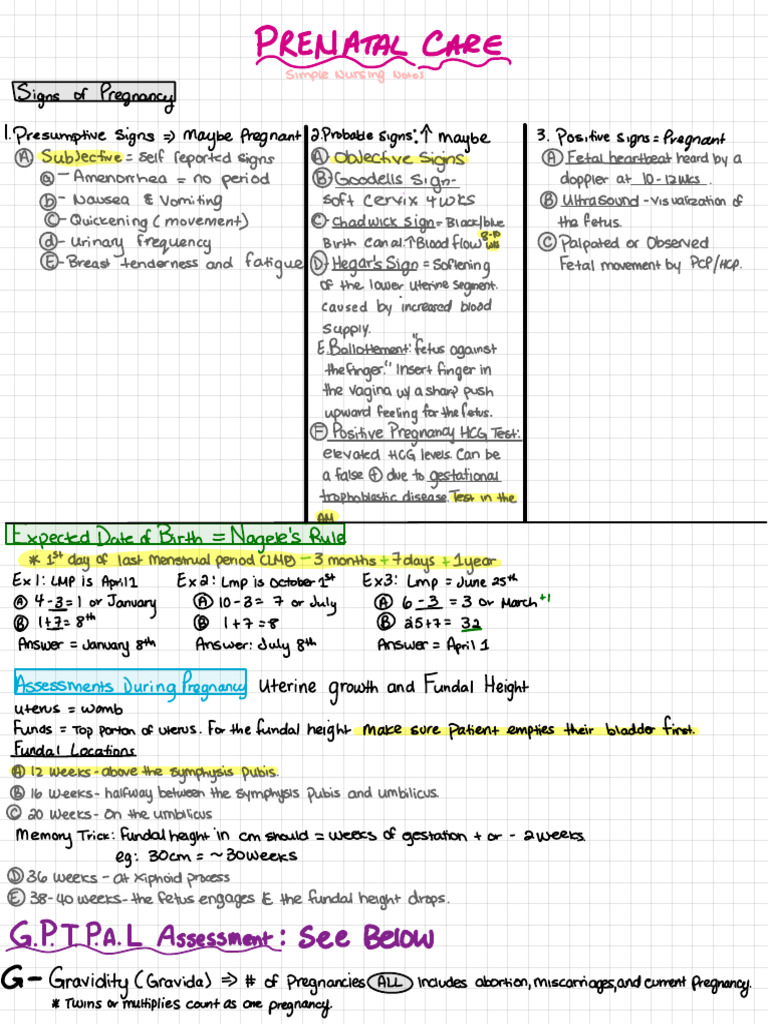 PRENATAL CARE
Simple Nursing Notes
Signs of Pregnancy
1. Presumptive Signs ⇒ Maybe Pregnant
Ⓐ Subjective = Self reported signs
ⓐ - Amenorrhea = no period
ⓑ - Nausea & Vomiting
Ⓒ - Quickening (movement)
ⓓ - Urinary frequency
Ⓔ - Breast tenderness and fatigue
2. Probable signs: ↑ maybe
Ⓐ Objective Signs
Ⓑ - Goodells Sign -
soft cervix 4 wks
Ⓒ - Chadwick Sign = Black/blue
Birth Canal. ↑ Blood flow 8-10 wks
Ⓓ - Hegar's Sign = Softening
of the lower uterine segment.
caused by increased blood
supply.
E. Ballottement: "fetus against
the finger." Insert finger in
the vagina w/ a sharp push
upward feeling for the fetus.
Ⓕ Positive Pregnancy HCG Test:
elevated HCG levels. Can be
a false ⊕ due to gestational
trophoblastic disease. Test in the
AM
3. Positive signs = Pregnant
Ⓐ Fetal heartbeat heard by a
doppler at 10-12 wks.
Ⓑ Ultrasound - visualization of
the fetus.
Ⓒ Palpated or Observed
Fetal movement by PCP/HCP.
Expected Date of Birth = Nagele's Rule
* 1st day of last menstrual period (LMP) - 3 months + 7 days + 1 year
Ex 1: LMP is April 1
Ⓐ 4 - 3 = 1 or January
Ⓑ 1 + 7 = 8th
Answer = January 8th
Ex 2: Lmp is October 1st
Ⓐ 10 - 3 = 7 or July
Ⓑ 1 + 7 = 8
Answer: July 8th
Ex3: Lmp = June 25th
Ⓐ 6 - 3 = 3 or March +1
Ⓑ 25 + 7 = 32
Answer = April 1
Assessments During Pregnancy Uterine growth and Fundal Height
uterus = womb
Funds = Top portion of uterus. For the fundal height make sure patient empties their bladder first.
Fundal Locations
Ⓐ 12 weeks - above the symphysis pubis.
Ⓑ 16 weeks - halfway between the symphysis pubis and umbilicus.
Ⓒ 20 weeks - On the umbilicus
Memory Trick: fundal height in cm should = weeks of gestation + or - 2 weeks.
eg: 30cm = ~30 weeks
Ⓓ 36 weeks - at xiphoid process
Ⓔ 38-40 weeks - the fetus engages & the fundal height drops.
G.P.T.P.A.L Assessment: See Below
G - Gravidity (Gravida) ⇒ # of Pregnancies ALL includes abortion, miscarriages, and current pregnancy.
* Twins or multiplies count as one pregnancy.